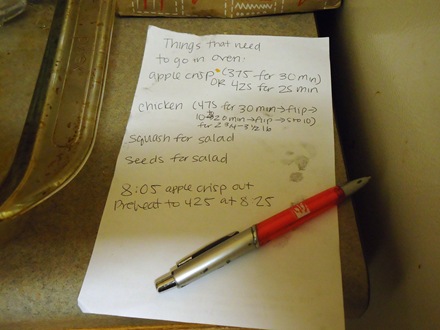 Things that need
to go in oven:
apple crisp (375 for 30 min)
OR 425 for 25 min
chicken (475 for 30 min → flip →
10-20 min → flip → 5 to 10)
for 2 3/4 - 3 1/2 lb
squash for salad
seeds for salad
8:05 apple crisp out
Preheat to 425 at 8:25